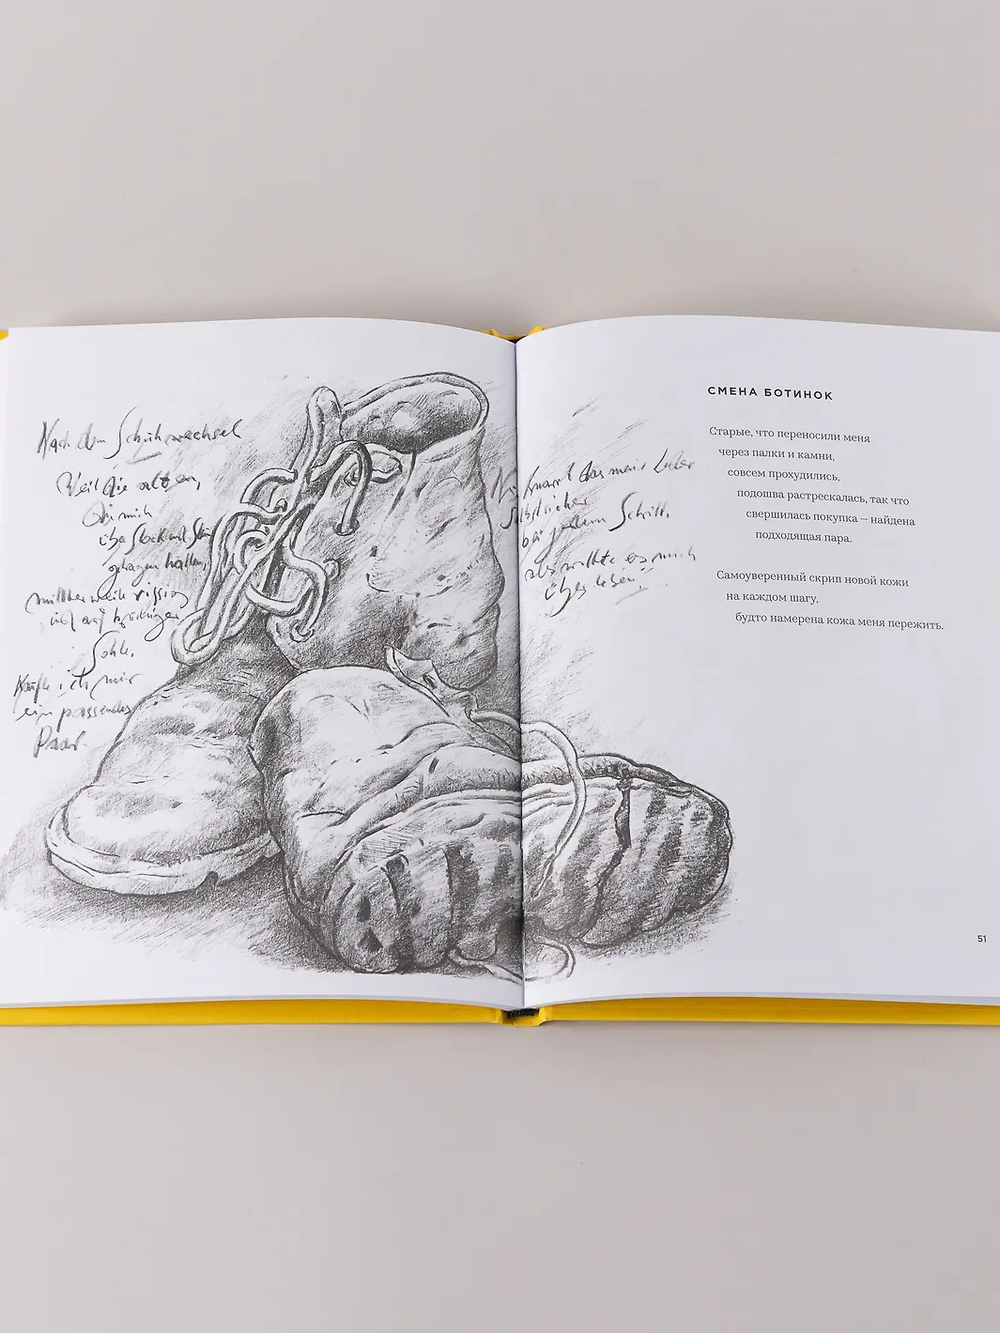 Nach dem Schuhwechsel
Weil die alten,
die mich
über Stock und Stein
getragen hatten,
mittlerweile rissig
und auf brüchiger
Sohle.
Kaufte ich mir
ein passendes
Paar.
knarrt das neue Leder
bei jedem Schritt,
als wollte es mich
überleben.
СМЕНА БОТИНОК
Старые, что переносили меня
через палки и камни,
совсем прохудились,
подошва растрескалась, так что
свершилась покупка — найдена
подходящая пара.
Самоуверенный скрип новой кожи
на каждом шагу,
будто намерена кожа меня пережить.
51